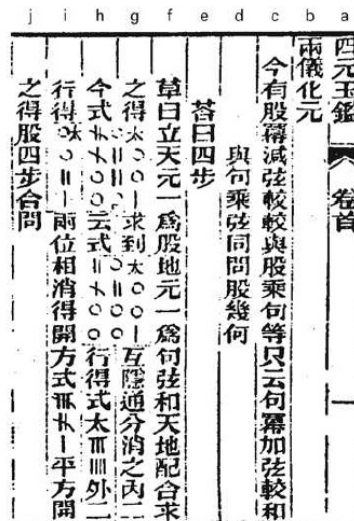 j i h g f e d c b a
四元玉鑑 卷首 一
兩儀化元
今有股冪減弦較較與股乘句等只云句冪加弦較和
與句乘弦同問股幾何
荅曰四步
草曰立天元一爲股地元一爲句弦和天地配合求
之得 求到 互隱通分消之內二
今式 云式 行得式太 外二
行得 兩位相消得開方式 平方開
之得股四步合問